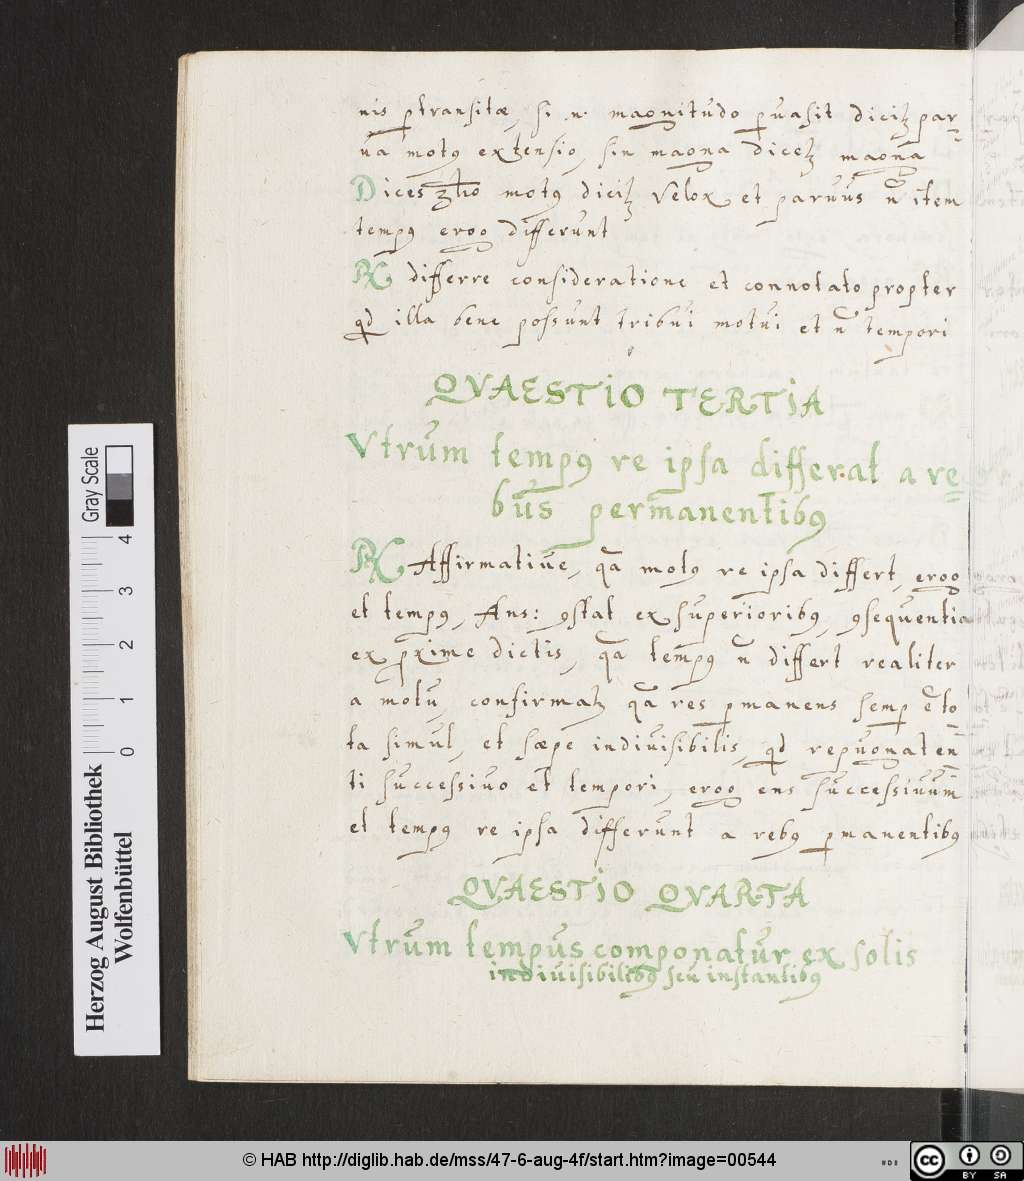 nis ptransitæ, si n. magnitudo puasit dicitꝫ par=
ua motꝰ extensio, sin magna dicetꝫ magna
Dices 3tio motꝰ dicitꝫ velox et paruus ñ item
tempꝰ ergo differunt
R differre consideratione et connotato propter
qd illa bene possunt tribui motui et ñ tempori
QVAESTIO TERTIA
Vtrum tempꝰ re ipsa differat a re=
bus permanentibꝰ
R Affirmatiue, qa motꝰ re ipsa differt, ergo
et tempꝰ, Ans: ꝯstat ex superioribꝰ, ꝯsequentia
ex proxime dictis, qa tempꝰ ñ differt realiter
a motu, confirmatꝫ qa res pmanens semp e to=
ta simul, et sæpe indiuisibilis, qd repugnat en=
ti successiuo et tempori, ergo ens successiuum
et tempꝰ re ipsa differunt a rebꝰ pmanentibꝰ
QVAESTIO QVARTA
Vtrum tempus componatur ex solis
indiuisibilibꝰ seu instantibꝰ
Herzog August Bibliothek
Wolfenbüttel
Gray Scale
0 1 2 3 4
© HAB http://diglib.hab.de/mss/47-6-aug-4f/start.htm?image=00544
cc BY SA